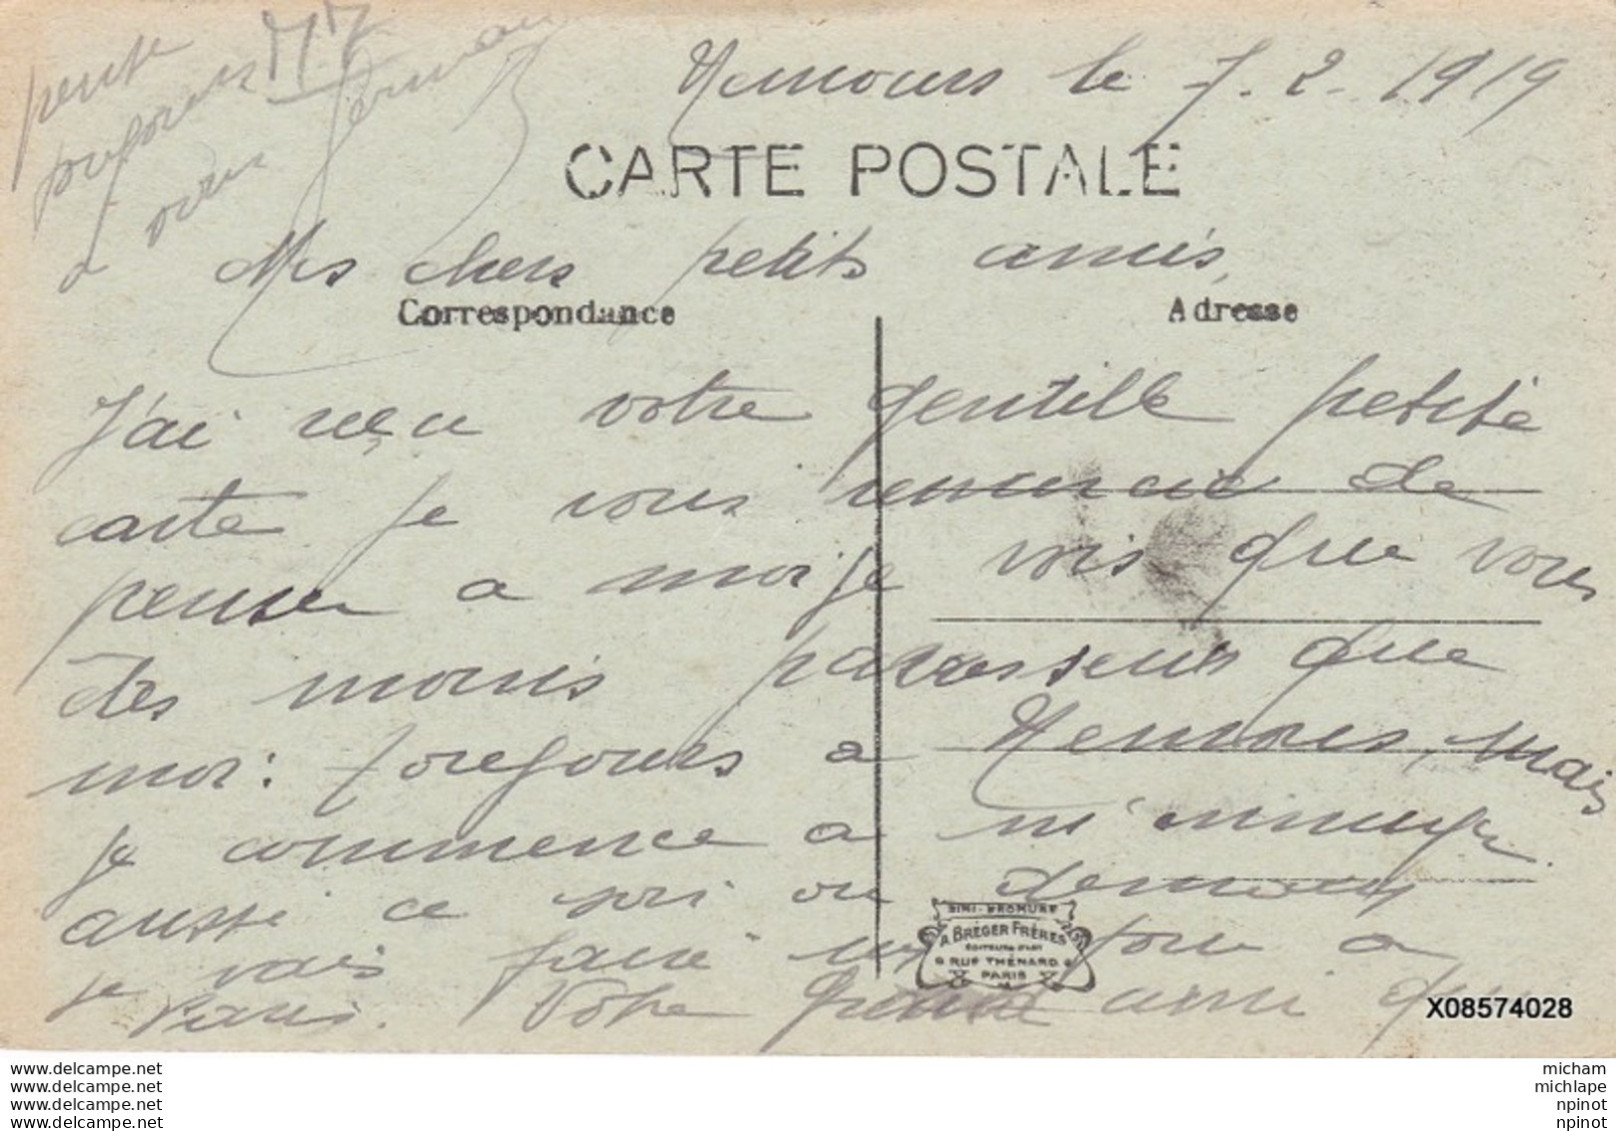 Nemours le 7-2-1919
CARTE POSTALE
Mes chers petits amis,
Correspondance
Adresse
J'ai reçu votre gentille petite
carte je vous remercie de
penser a moi je vois que vous
êtes moins paresseux que
moi: toujours a Nemours, mais
je commence a m'ennuyer
aussi ce soir ou demain
je vais faire un tour a
Paris. Votre grand ami qui
pense
toujours
a vous Germain
SIMI-BROMURE
A. BRÉGER FRÈRES
ÉDITEURS D'ART
9 RUE THÉNARD 9
PARIS
X08574028
www.delcampe.net
www.delcampe.net
www.delcampe.net
www.delcampe.net
micham
michlape
npinot
npinot